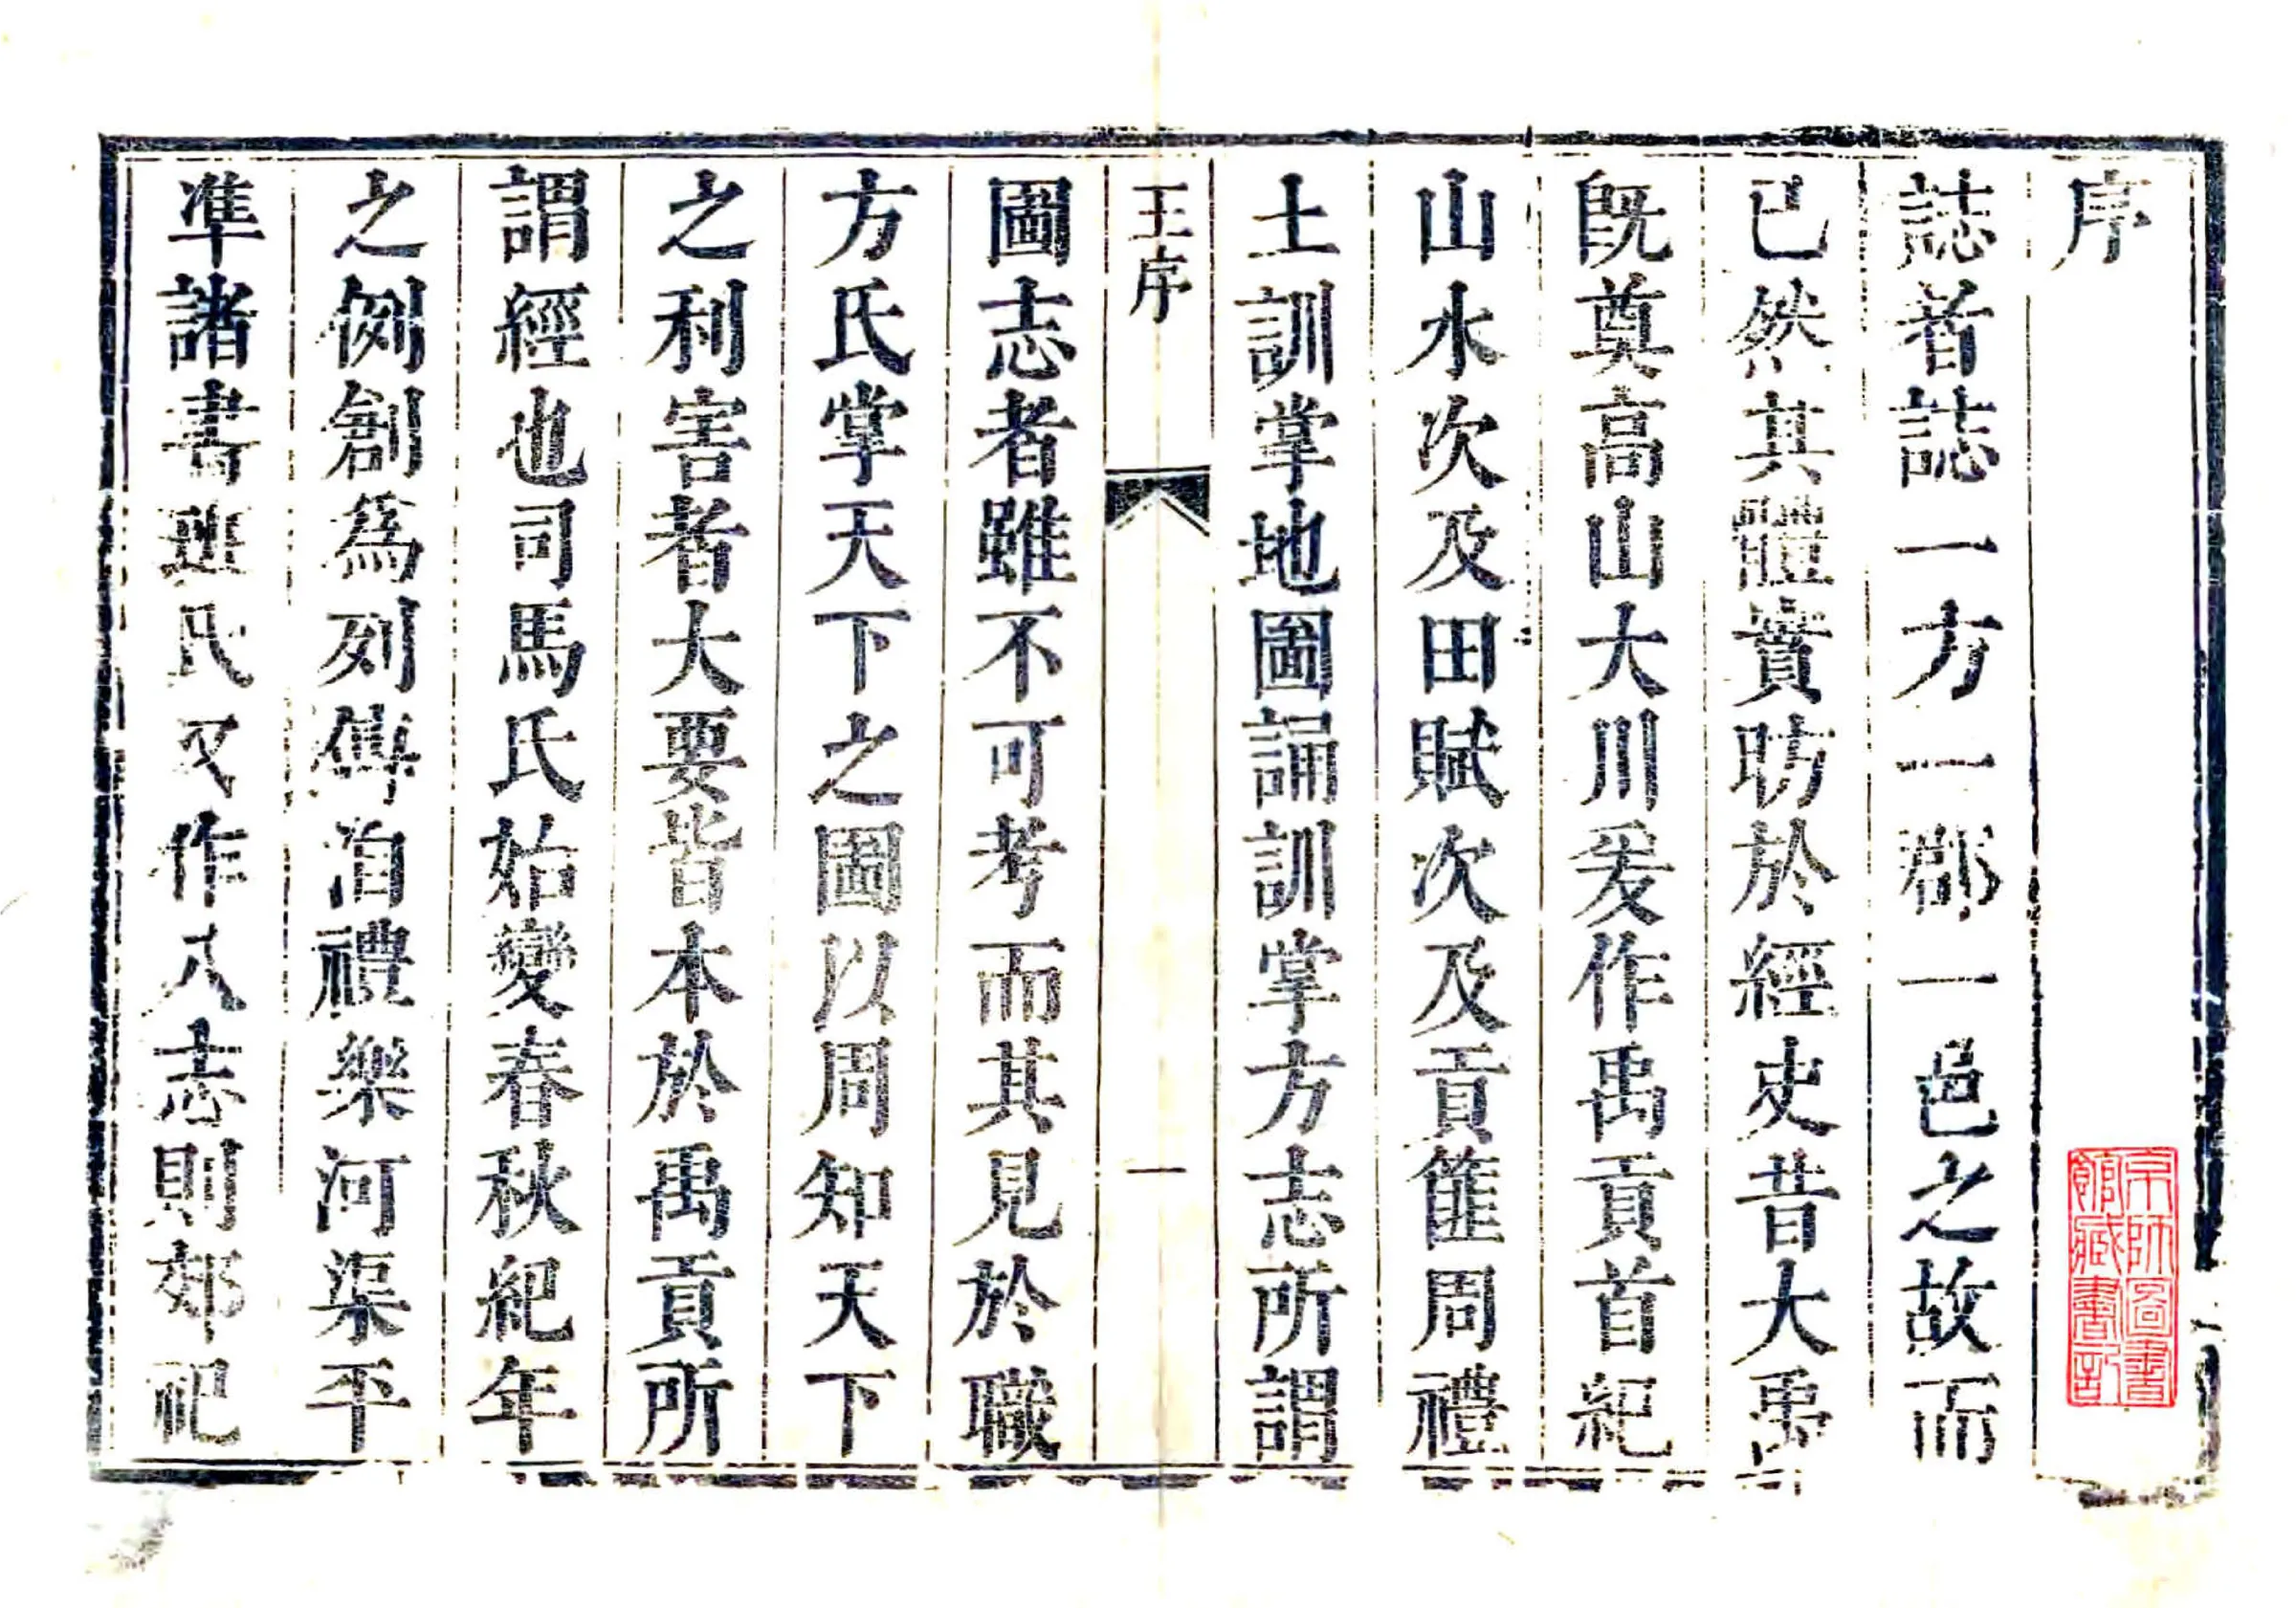 序
誌者誌一方一郡一邑之故而
已然其體實昉於經史昔大禹
旣奠高山大川爰作禹貢首紀
山水次及田賦次及貢篚周禮
土訓掌地圖誦訓掌方志所謂
王序
一
圖志者雖不可考而其見於職
方氏掌天下之圖以周知天下
之利害者大要皆本於禹貢所
謂經也司馬氏始變春秋紀年
之例創爲列傳泊禮樂河渠平
準諸書班氏又作八志則郊祀
京師圖書
館藏書記